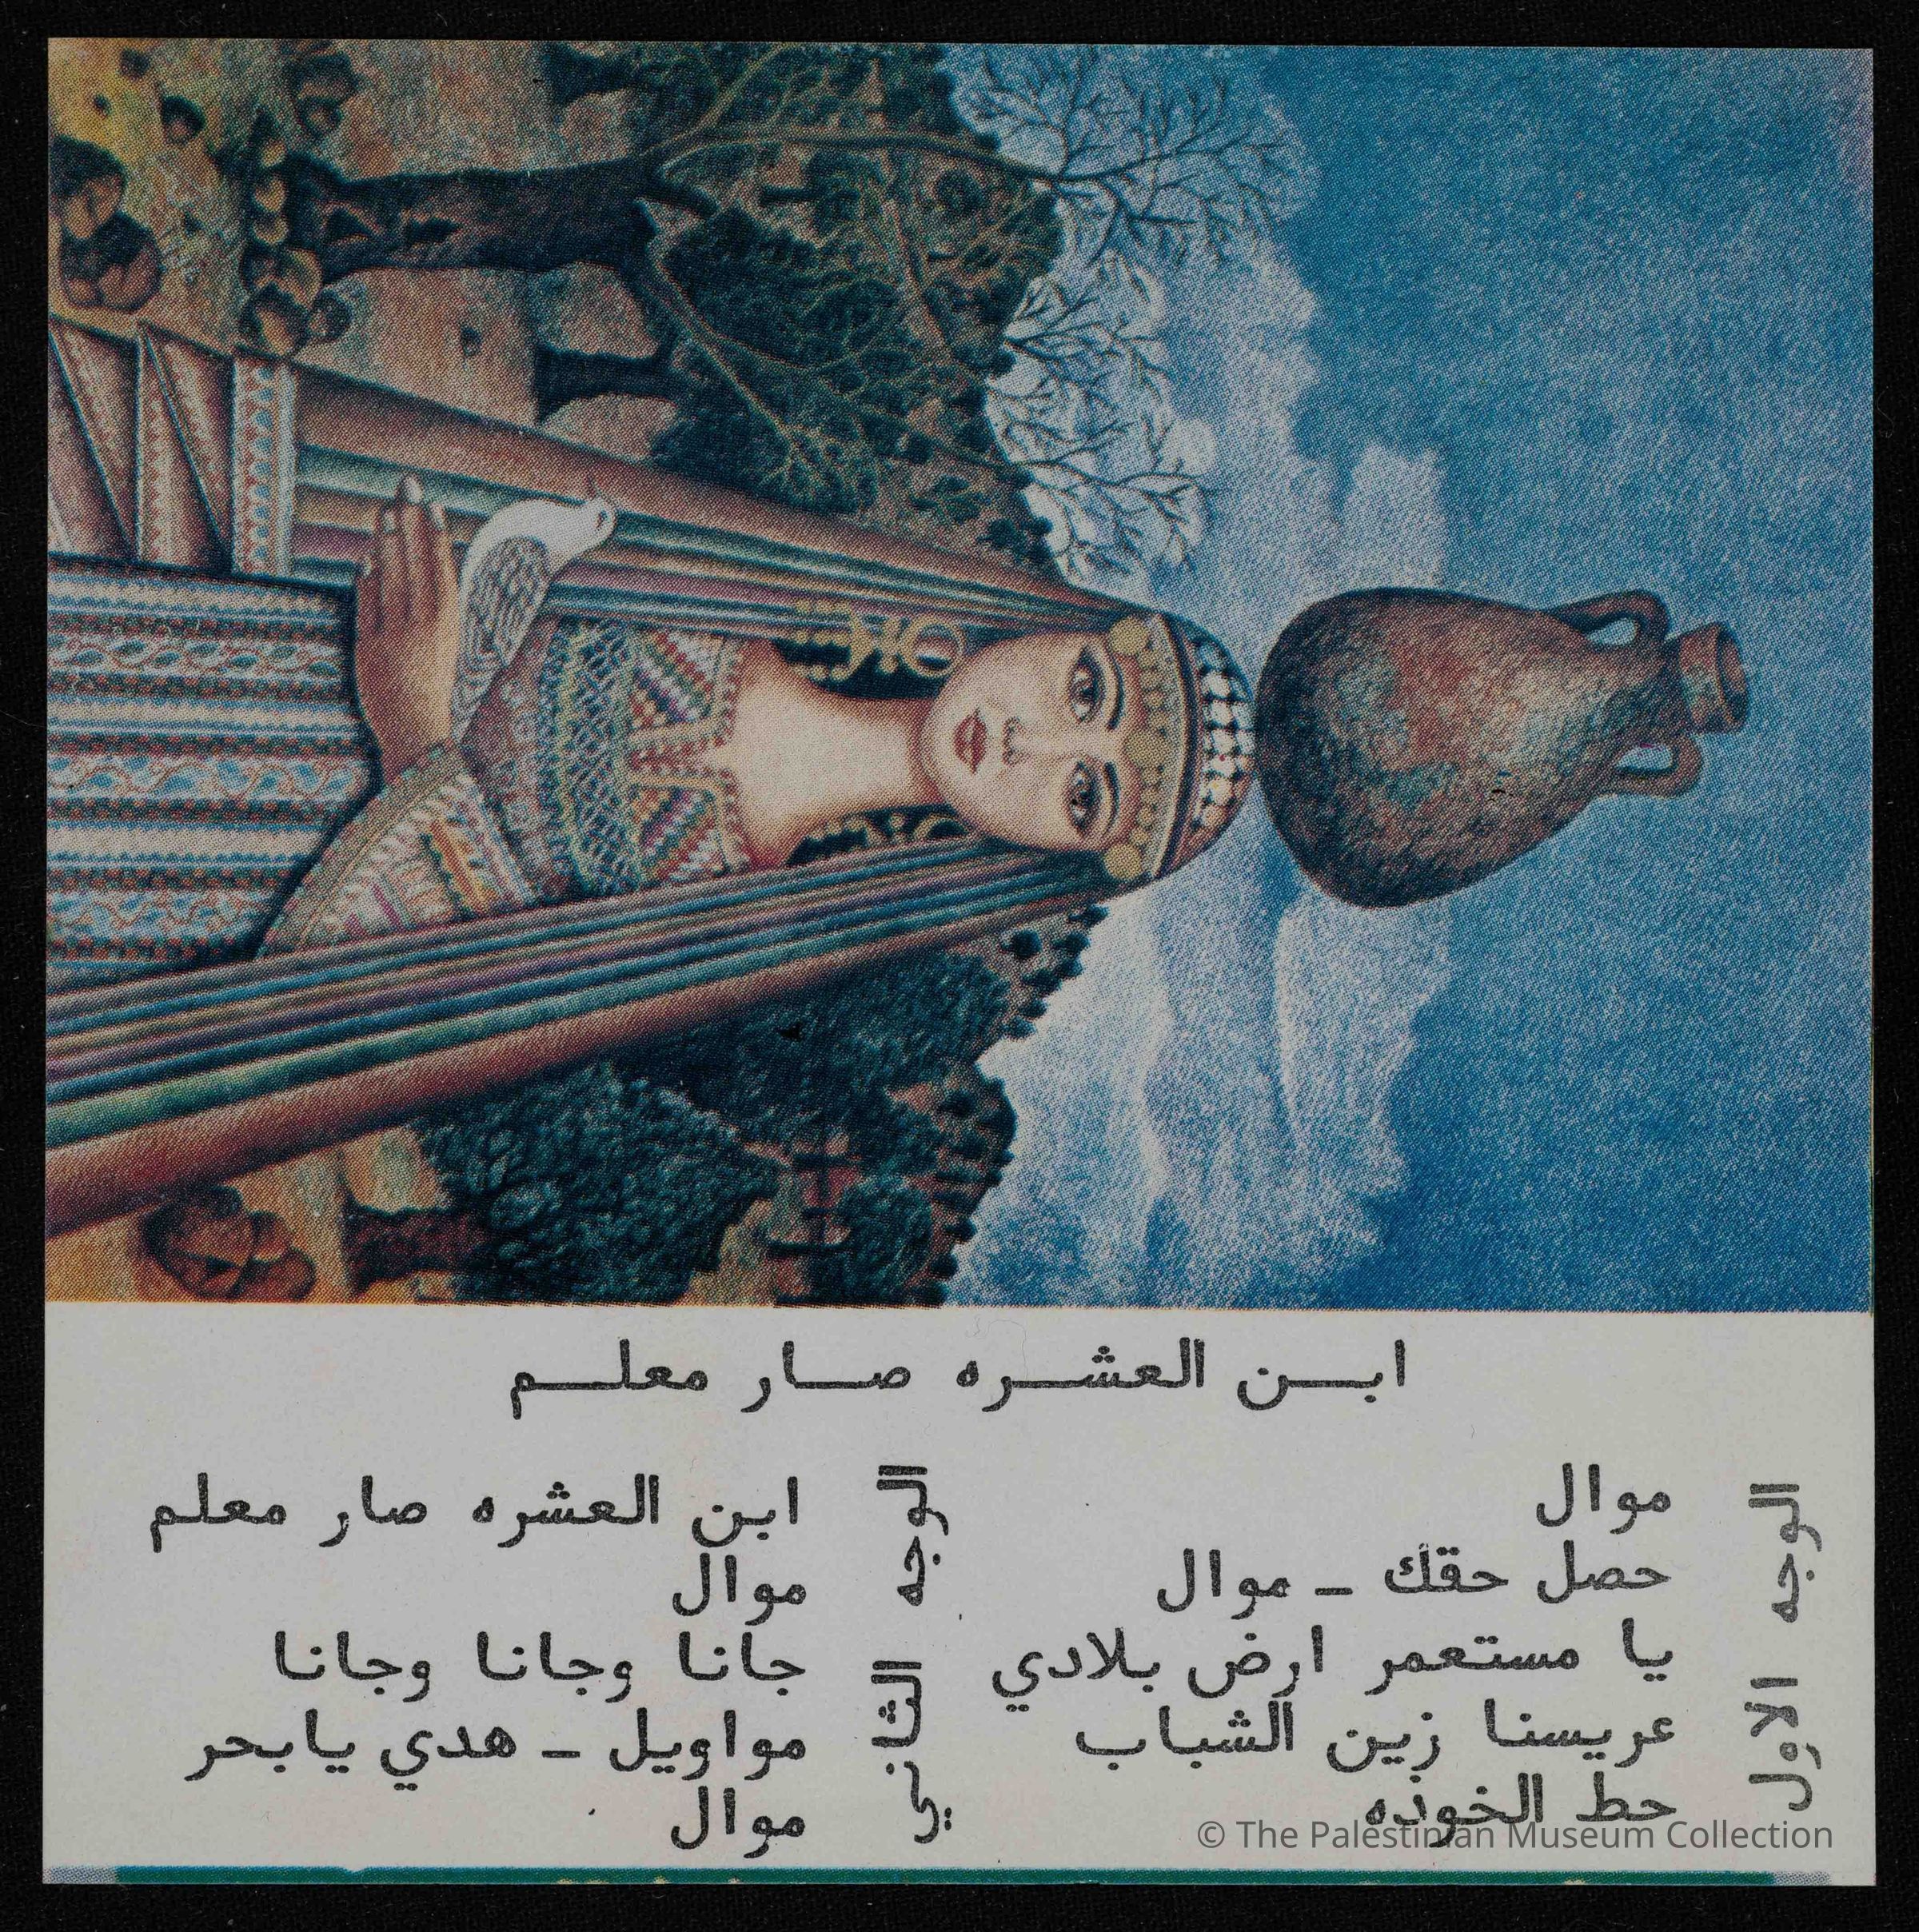 ابن العشره صار معلم
الوجه الاول
موال
حصل حقك - موال
يا مستعمر ارض بلادي
عريسنا زين الشباب
حط الخوذه
الوجه الثاني
ابن العشره صار معلم
موال
جانا وجانا وجانا
مواويل - هدي يابحر
موال
© The Palestinian Museum Collection